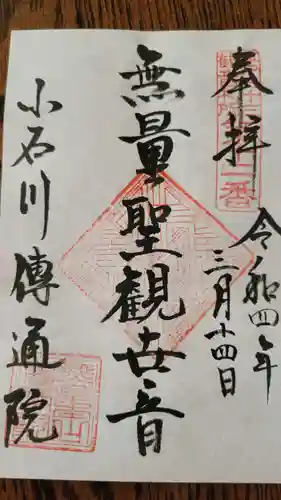 奉拝
令和四年
三月十四日
無量聖観世音
小石川傳通院